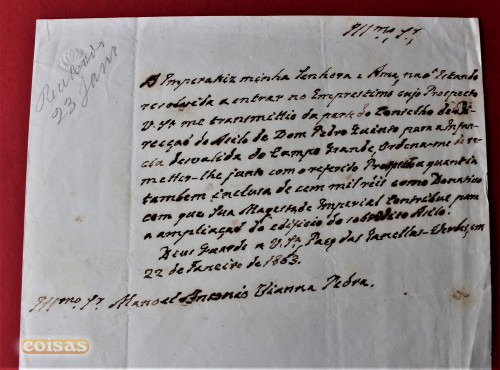 Illmo. Sr.
Recebido
23 Janr
A Imperatriz minha Senhora e Ama, naõ Estando
resolvida a entrar no Emprestimo cujo Prospecto
V. Sª. me transmittio da parte do Conselho de Di-
recçaõ do Asilo de Dom Pedro Quinto para a Infan-
cia desvalida do Campo Grande, Ordena-me de re-
metter-lhe junto com o referido Prospecto a quantia
tambem inclusa de cem mil réis como Donativo
com que Sua Magestade Imperial Contribue para
a ampliaçaõ do edificio do sobredito Asilo.
Deus Guarde a V. Sª. Paço das Janellas-Verdes, em
22 de Janeiro de 1863.
Illmo. Sr. Manoel Antonio Vianna Pedra.
coisas